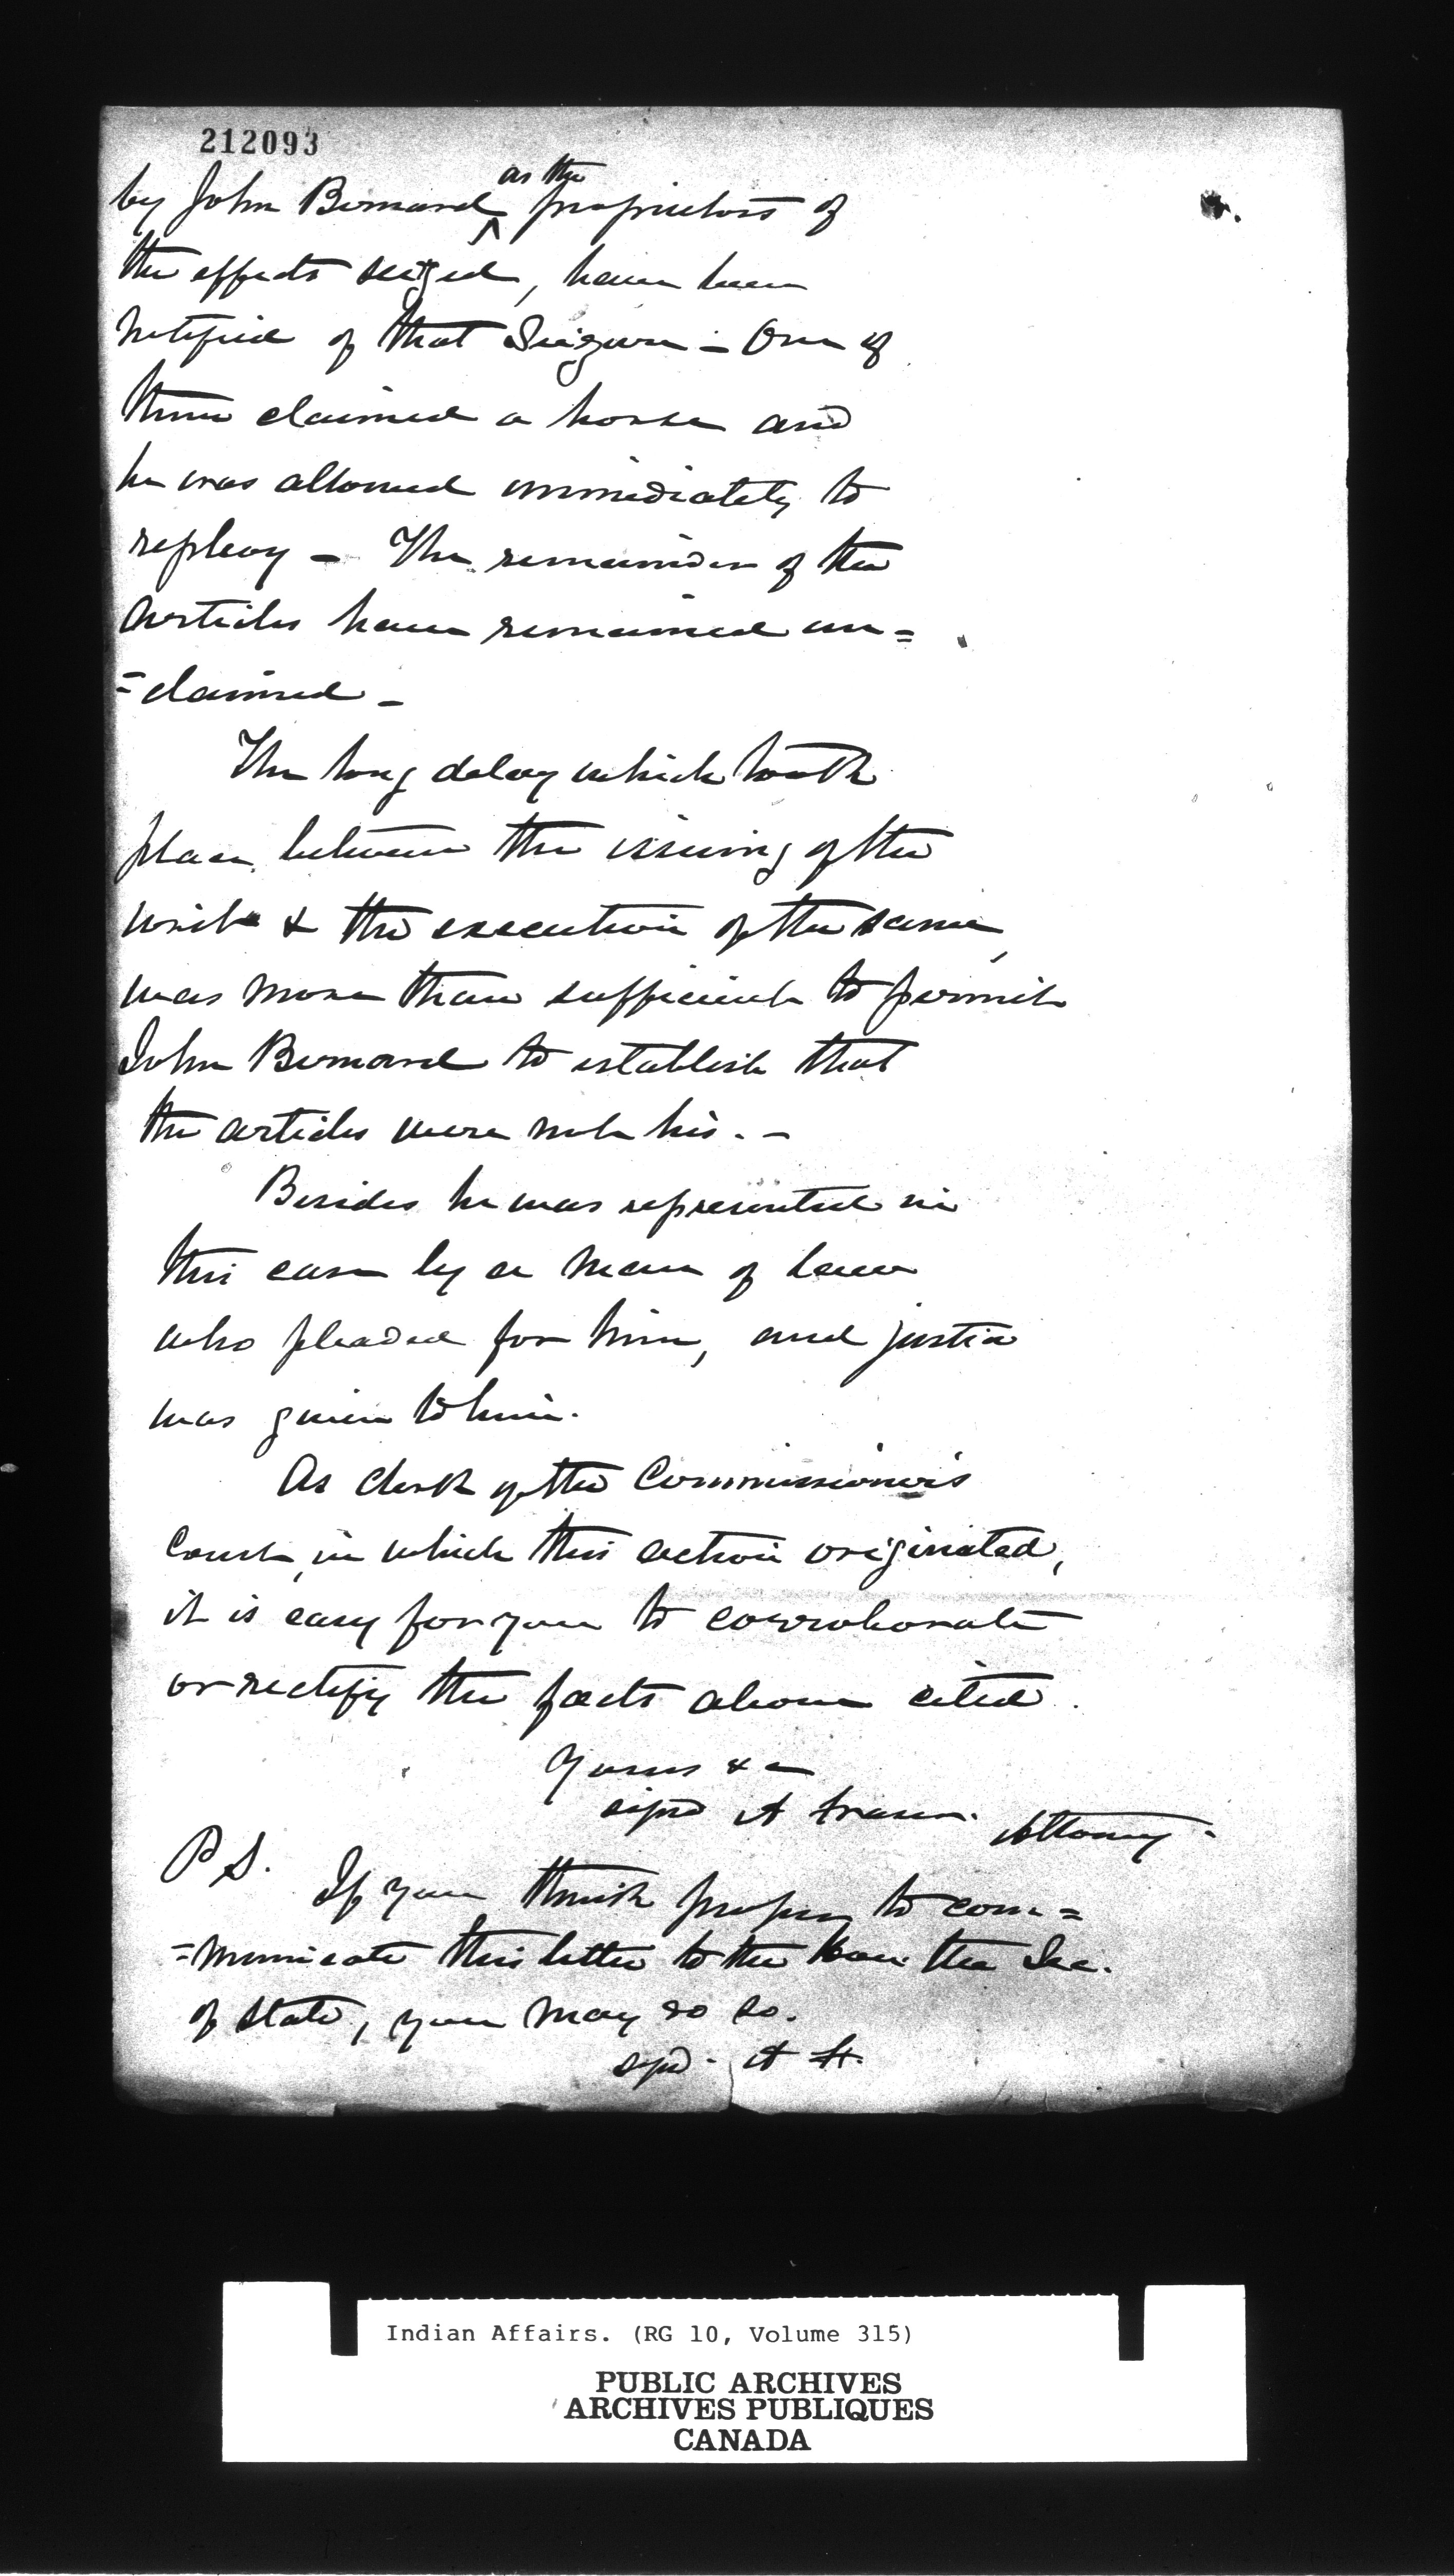 212093
as the
by John Bernard ^ proprietors of
the effects seized, have been
notified of that Seizure - One of
them claimed a horse and
he was allowed immediately to
replevy - The remainder of the
articles have remained un=
=claimed -
The long delay which took
place between the issuing of the
writ & the execution of the same,
was more than sufficient to permit
John Bernard to establish that
the articles were not his. -
Besides he was represented in
this case by a man of law
who pleaded for him, and justice
was given to him.
As Clerk of the Commissioner's
Court, in which this action originated,
it is easy for you to corroborate
or rectify the facts above cited.
Yours &c
signd A Fraser. Attorney.
P S. If you think proper to com=
=municate this letter to the Hon. the Sec.
of State, you may do so.
sgd. A F.
Indian Affairs. (RG 10, Volume 315)
PUBLIC ARCHIVES
ARCHIVES PUBLIQUES
CANADA